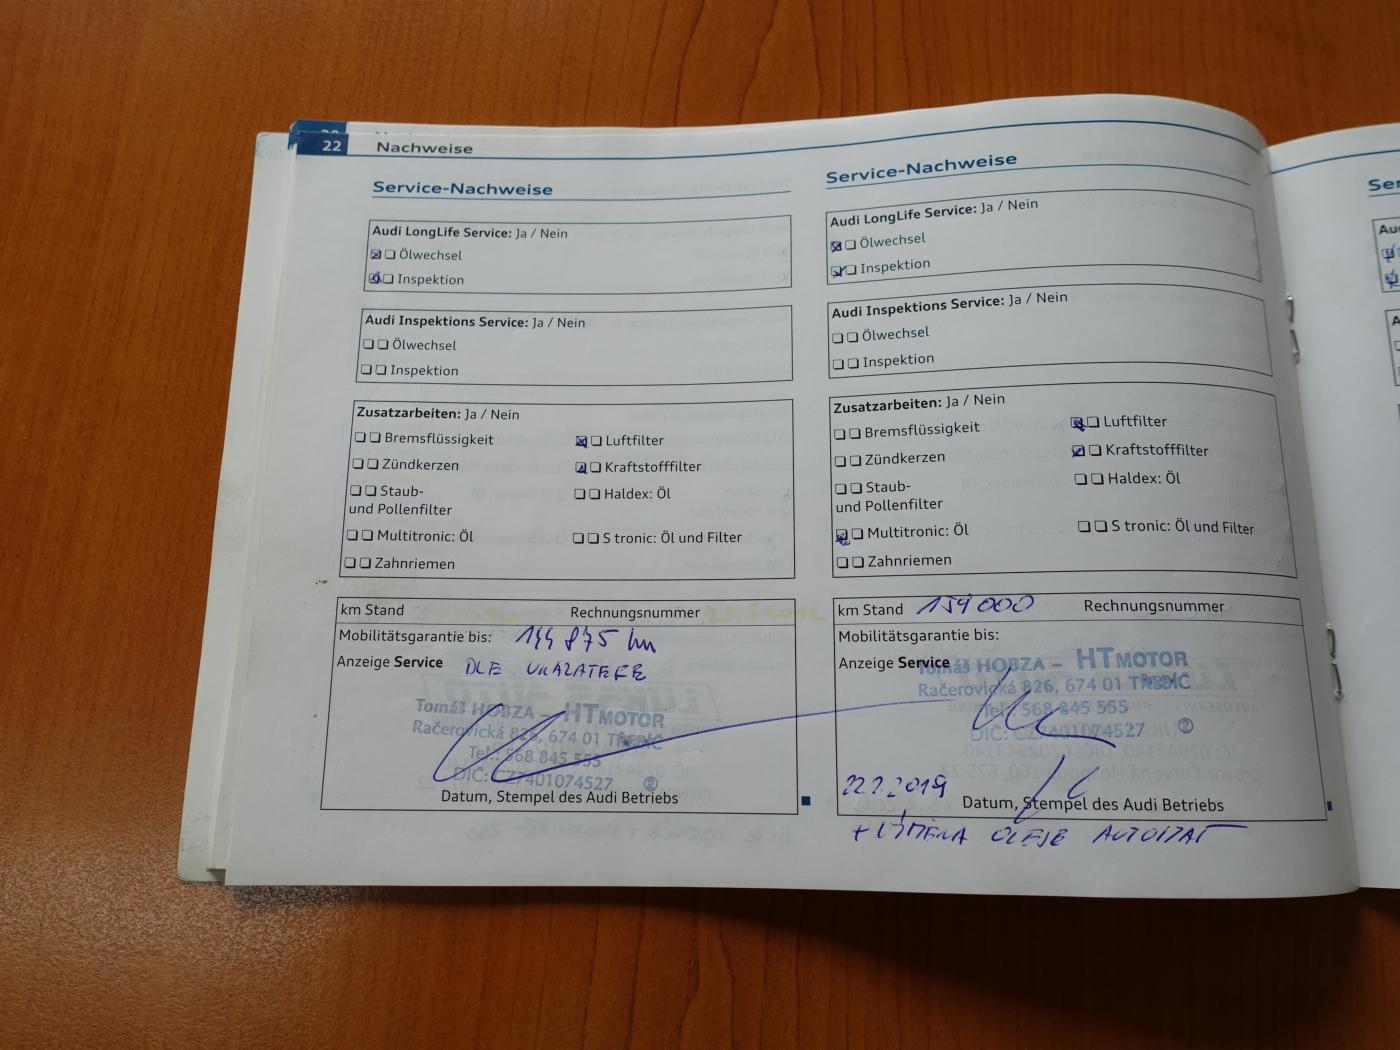 22 Nachweise
Service-Nachweise
Audi LongLife Service: Ja / Nein
Ölwechsel
Inspektion
Audi Inspektions Service: Ja / Nein
Ölwechsel
Inspektion
Zusatzarbeiten: Ja / Nein
Bremsflüssigkeit
Luftfilter
Zündkerzen
Kraftstofffilter
Staub-
und Pollenfilter
Haldex: Öl
Multitronic: Öl
S tronic: Öl und Filter
Zahnriemen
km Stand
Rechnungsnummer
Mobilitätsgarantie bis: 144 875 km
Anzeige Service DLE UKAZATELE
Tomáš HOBZA – HTMOTOR
Račerovická 826, 674 01 TŘEBÍČ
Tel.: 568 845 555
DIČ: CZ7401074527 2
Datum, Stempel des Audi Betriebs
Service-Nachweise
Audi LongLife Service: Ja / Nein
Ölwechsel
Inspektion
Audi Inspektions Service: Ja / Nein
Ölwechsel
Inspektion
Zusatzarbeiten: Ja / Nein
Bremsflüssigkeit
Luftfilter
Zündkerzen
Kraftstofffilter
Staub-
und Pollenfilter
Haldex: Öl
Multitronic: Öl
S tronic: Öl und Filter
Zahnriemen
km Stand 159000
Rechnungsnummer
Mobilitätsgarantie bis:
Anzeige Service
Tomáš HOBZA – HTMOTOR
Račerovická 826, 674 01 TŘEBÍČ
Tel.: 568 845 555
DIČ: CZ7401074527 2
22.2.2019
Datum, Stempel des Audi Betriebs
+ VÝMĚNA OLEJE AUTOMAT